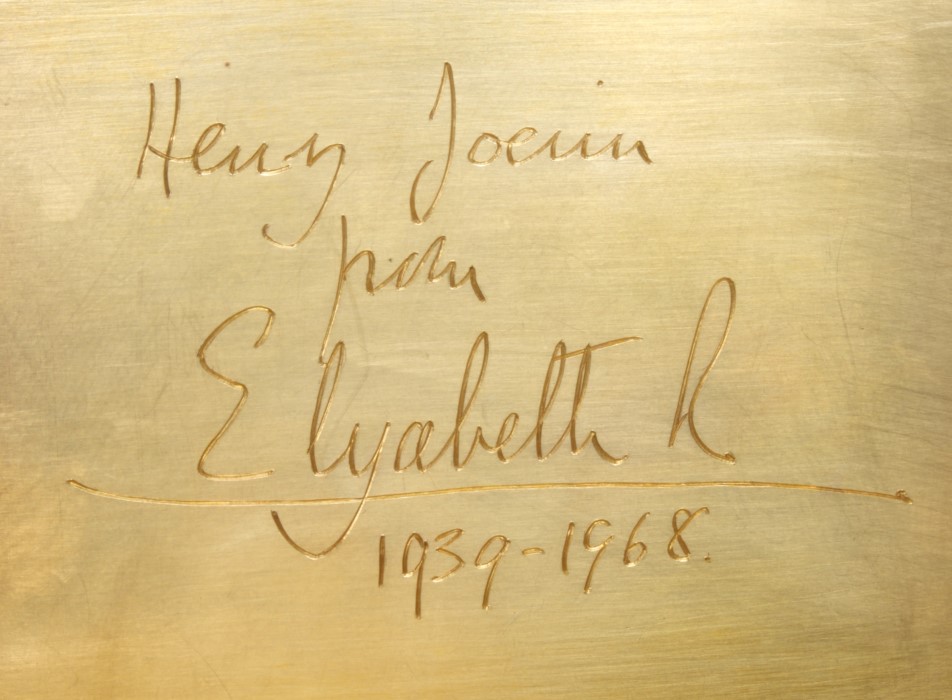 Henry Joerin
from
Elizabeth R
1939-1968.